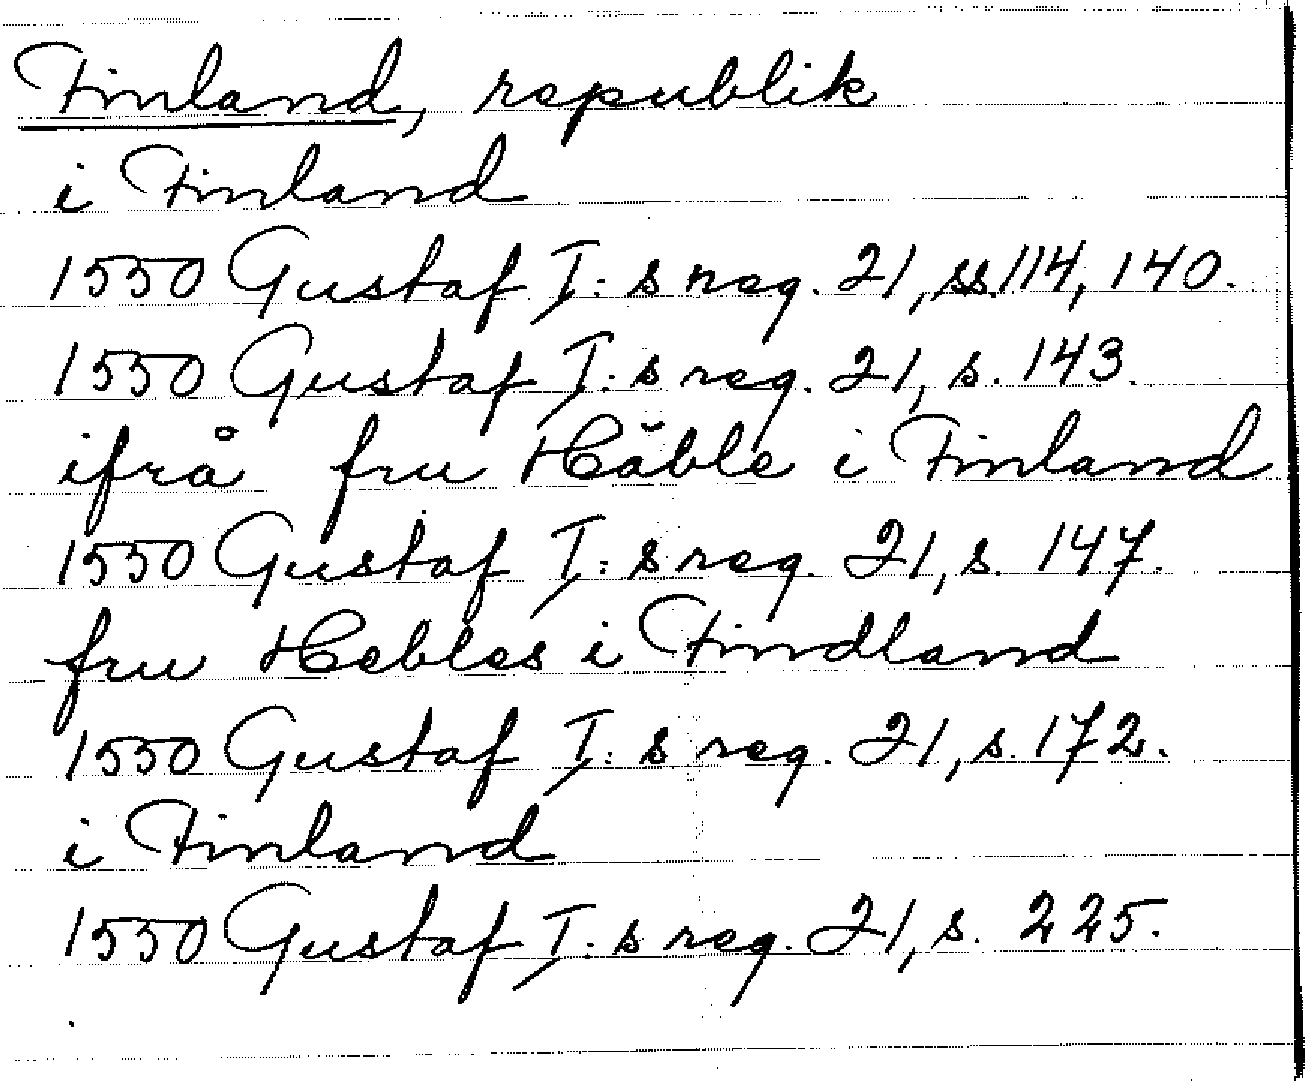 Finland, republik
i Finland
1550 Gustaf I: s reg. 21, ss. 114, 140.
1550 Gustaf I: s reg. 21, s. 143.
ifrå fru Häble i Finland
1550 Gustaf I: s reg. 21, s. 147.
fru Hebles i Findland
1550 Gustaf I: s reg. 21, s. 172.
i Finland
1550 Gustaf I: s reg. 21, s. 225.